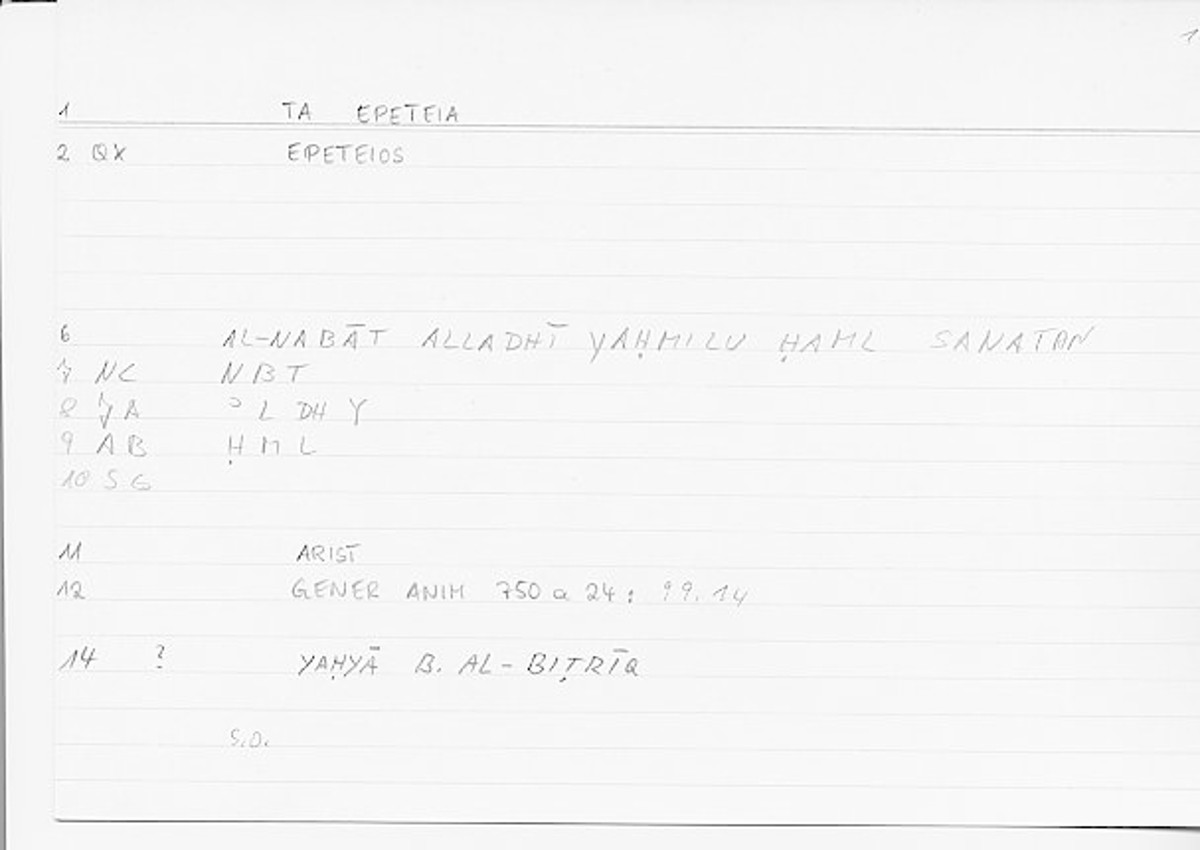 1
1 TA EPETEIA
2 QX EPETEIOS
6 AL-NABĀT ALLADHĪ YAḤMILU ḤAML SANATAN
7 NC NBT
8 JA ᵓL DH Y
9 AB ḤML
10 SG
11 ARIST
12 GENER ANIM 750 a 24 : 99.14
14 ? YAḤYĀ B. AL-BIṬRĪQ
S.O.